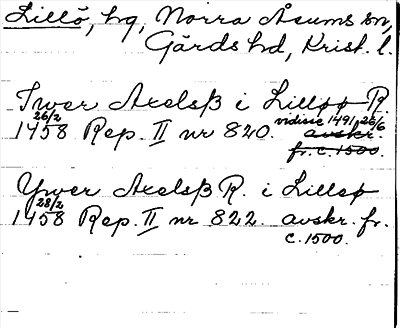 Lillö, hg, Norra Åsums sn,
Gärds hd, Krist. l.
Iwer Axelsß i Lilløø R.
26/2 1458 Rep. II nr 820. vidisse 1491 26/6
avskr.
fr. c. 1500.
Ywer Axelsß R. i Lilløø
28/2 1458 Rep. II nr 822. avskr. fr.
c. 1500.